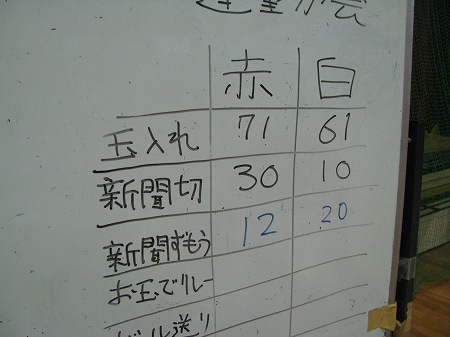 赤 白
玉入れ 71 61
新聞切 30 10
新聞ずもう 12 20
お玉でリレー
送り